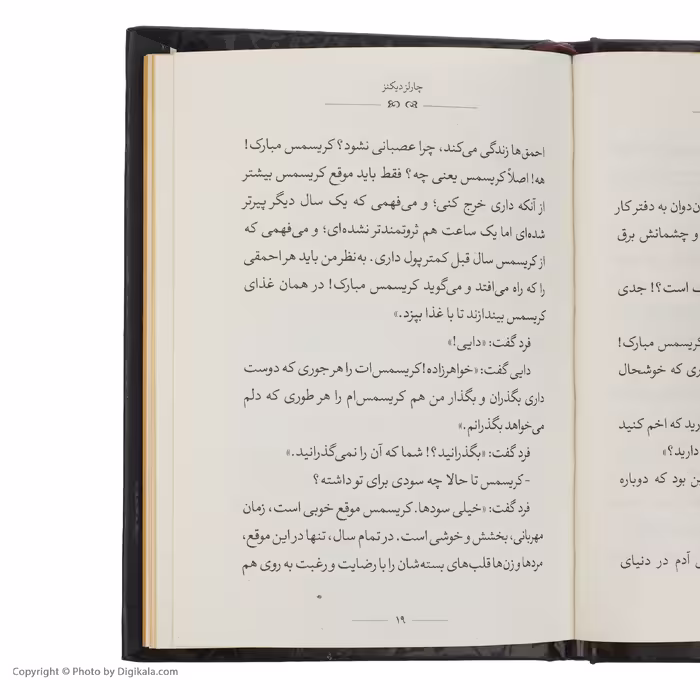 چارلز دیکنز
احمق‌ها زندگی می‌کند، چرا عصبانی نشود؟ کریسمس مبارک!
هه! اصلاً کریسمس یعنی چه؟ فقط باید موقع کریسمس بیشتر
از آنکه داری خرج کنی؛ و می‌فهمی که یک سال دیگر پیرتر
شده‌ای اما یک ساعت هم ثروتمندتر نشده‌ای؛ و می‌فهمی که
از کریسمس سال قبل کمتر پول داری. به‌نظر من باید هر احمقی
را که راه می‌افتد و می‌گوید کریسمس مبارک! در همان غذای
کریسمس بیندازند تا با غذا بپزد.»
فرد گفت: «دایی!»
دایی گفت: «خواهرزاده! کریسمس‌ات را هر جوری که دوست
داری بگذران و بگذار من هم کریسمس‌ام را هر طوری که دلم
می‌خواهد بگذرانم.»
فرد گفت: «بگذرانید؟! شما که آن را نمی‌گذرانید.»
- کریسمس تا حالا چه سودی برای تو داشته؟
فرد گفت: «خیلی سودها. کریسمس موقع خوبی است، زمان
مهربانی، بخشش و خوشی است. در تمام سال، تنها در این موقع،
مردها و زن‌ها قلب‌های بسته‌شان را با رضایت و رغبت به روی هم
۱۹
ن‌دوان به دفتر کار
و چشمانش برق
است؟! جدی
کریسمس مبارک!
ری که خوشحال
رید که اخم کنید
دارید؟»
ن بود که دوباره
آدم در دنیای
Copyright © Photo by Digikala.com